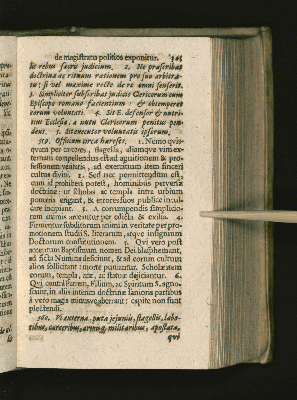 de magistratu politico exponitur.
de rebus sacris judicium. 2. Ne præscribat
doctrinæ ac rituum rationem pro suo arbitra-
tu; si vel maxime recte de re omni senserit.
3. Simpliciter subscribat judicio Clericorum cum
Episcopo romano facientium: & obtemperet
eorum voluntati. 4. Sit E. defensor & nutri-
tius Ecclesiæ, a nutu Clericorum penitus pen-
dent. 5. voluntatis ipsorum.
359. Officium circa hæreses. 1. Nemo
quam per carceres, flagella, aliamque vim ex-
ternam compellendus est ad agnitionem & pro-
fessionem veritatis, ad exercitium item sinceri
cultus divini. 2. Sed nec permittendum est,
cum id prohiberi potest, hominibus perversæ
doctrinæ: ut scholas ac templa intra urbium
pomœria erigant, & errores suos publice incul-
care incipiant. 3. A corrumpendis simplicio-
rum animis arceantur per edicta & exilia. 4.
Firmentur subditorum animi in veritate per pro-
motionem studii S. literarum, atque insignium
Doctorum constitutionem. 5. Qui vero post
acceptum Baptismum nomen Dei blasphemant,
ad ficta Numina deficiunt, & ad eorum cultum
alios sollicitant: morte puniantur. Scholæ item
eorum, templa, aræ, ac statuæ dejiciantur. 6.
Qui contra Patrem, Filium, ac Spiritum S. agno-
scunt, in aliis interim doctrinæ sanioris partibus
a vero magis minusve aberrant: capite non sunt
plectendi.
360. Vi externa, puta jejuniis, flagellis, labo-
ribus, carceribus, armisq; militaribus, apostata,
qui